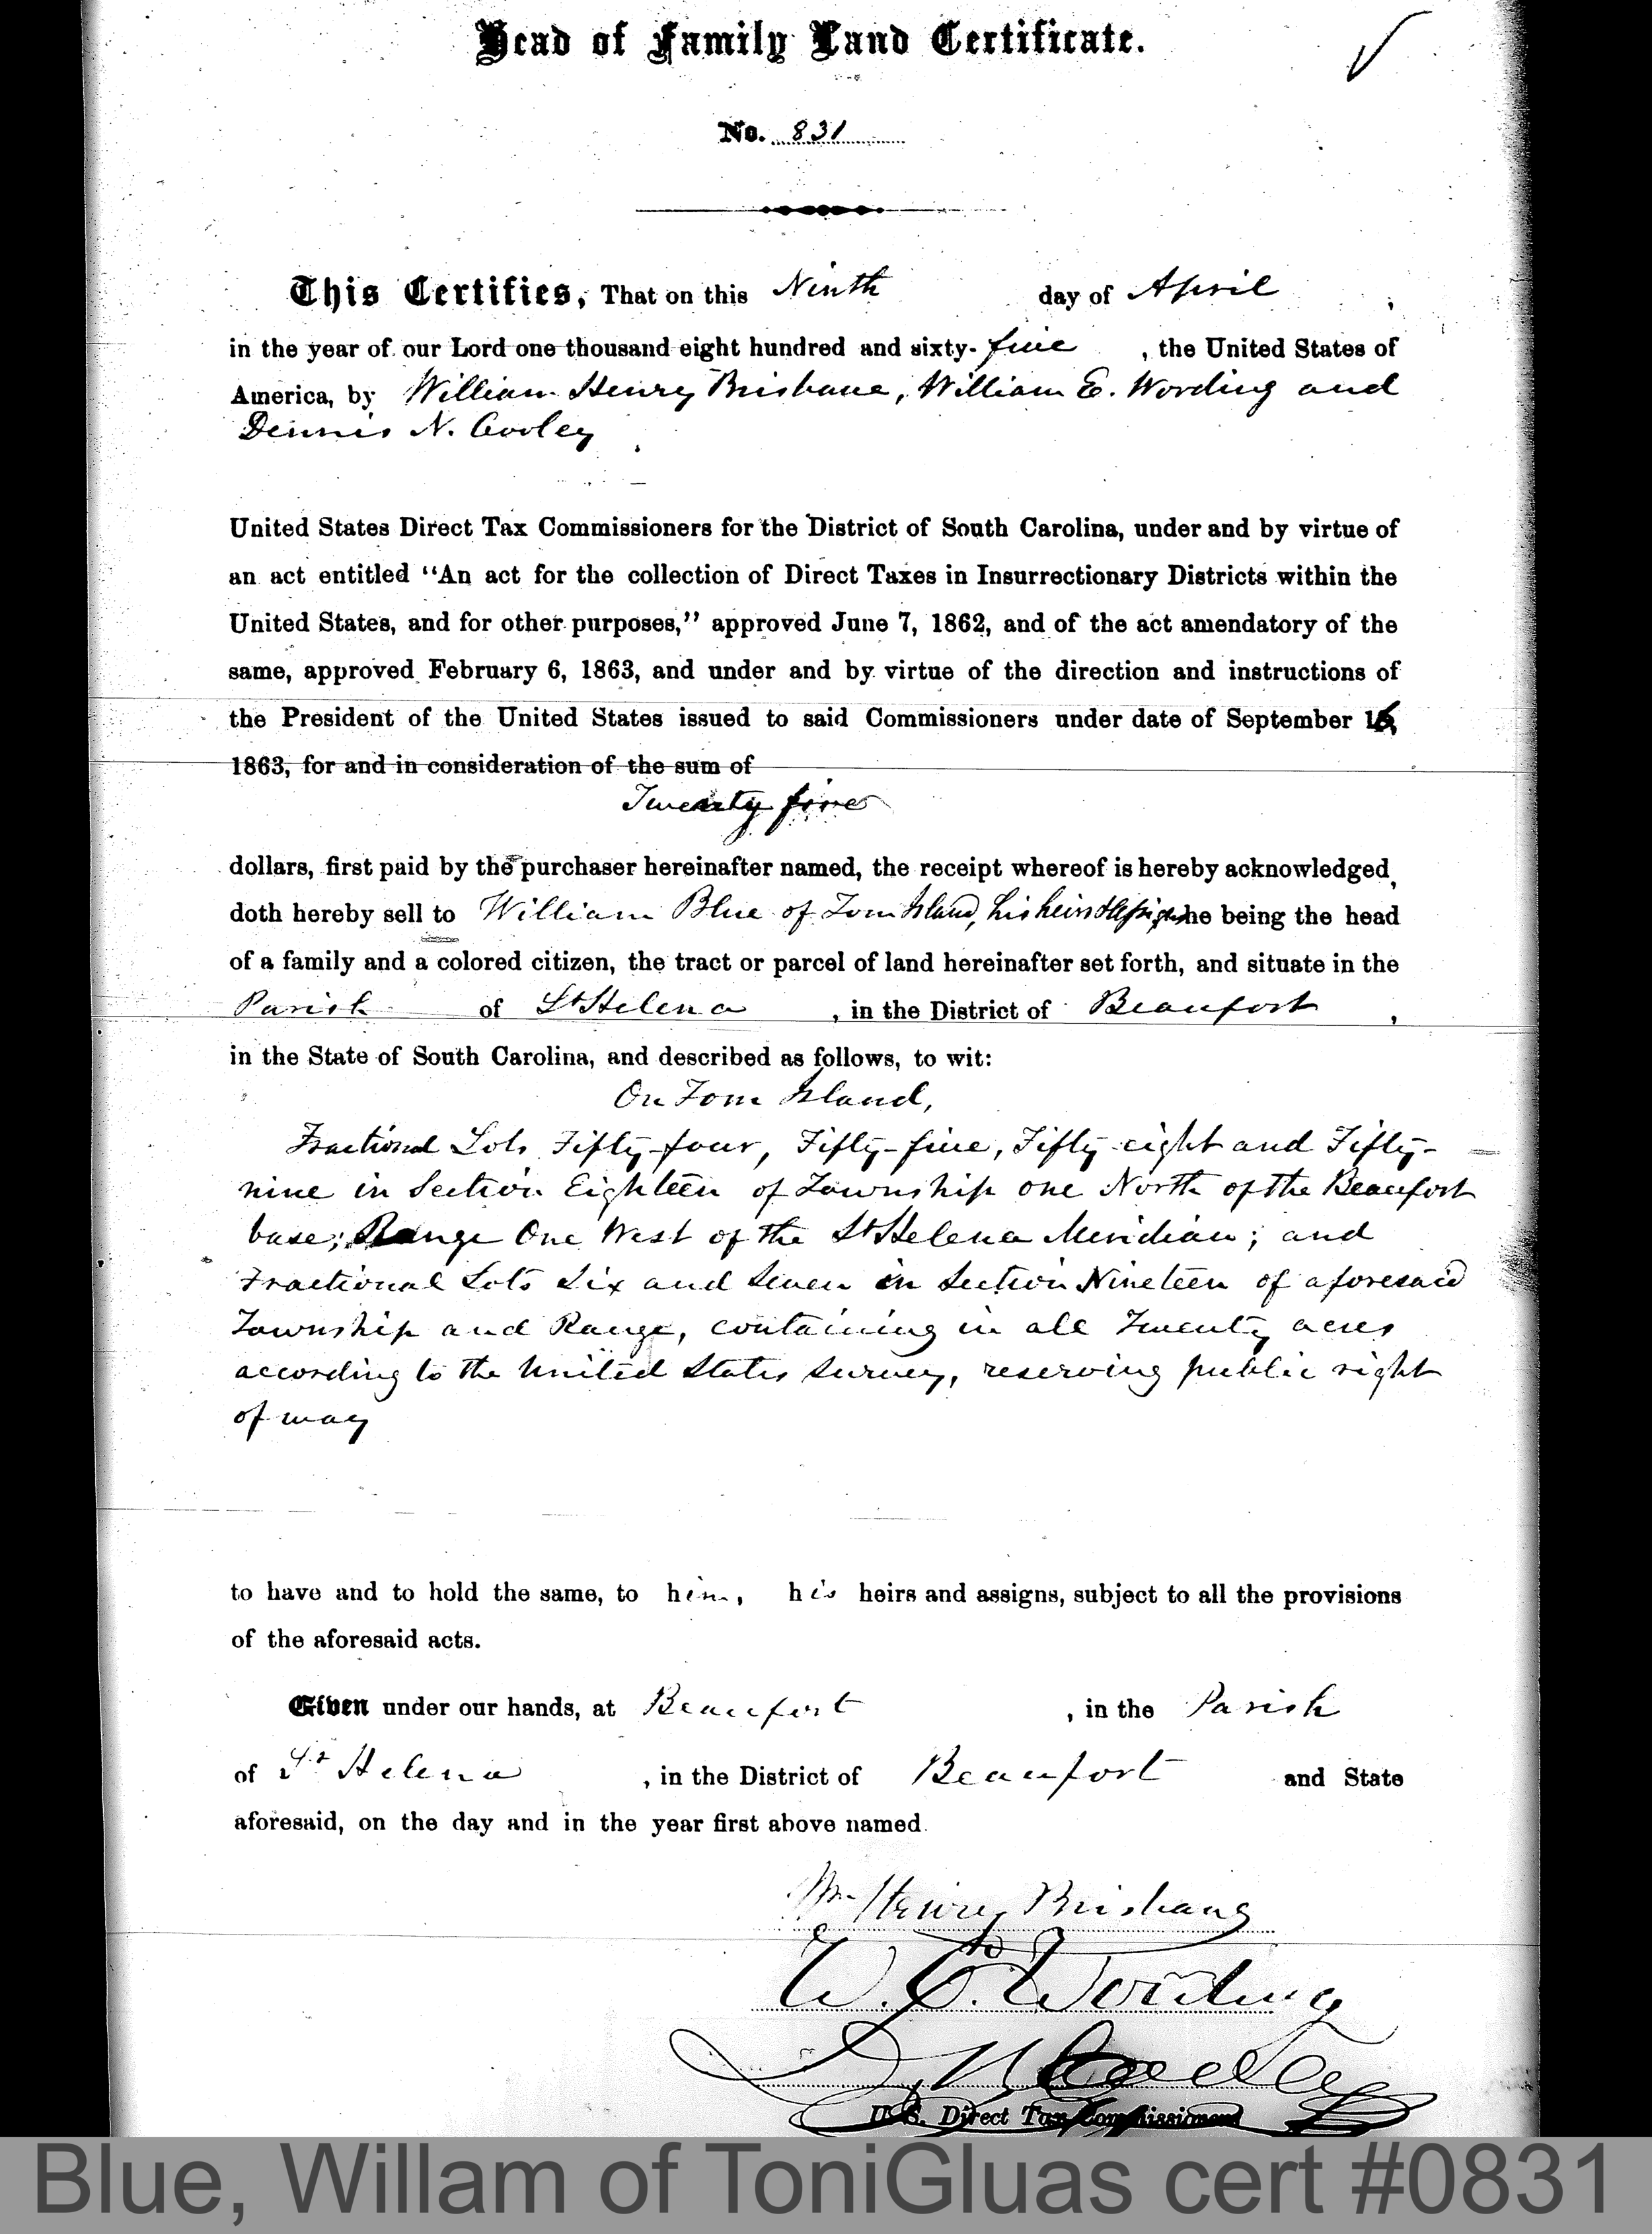 Head of Family Land Certificate.
No. 831
This Certifies, That on this Ninth day of April,
in the year of our Lord one thousand eight hundred and sixty-five, the United States of
America, by William Henry Brisbane, William E. Wording and
Dennis N. Cooley
United States Direct Tax Commissioners for the District of South Carolina, under and by virtue of
an act entitled "An act for the collection of Direct Taxes in Insurrectionary Districts within the
United States, and for other purposes," approved June 7, 1862, and of the act amendatory of the
same, approved February 6, 1863, and under and by virtue of the direction and instructions of
the President of the United States issued to said Commissioners under date of September 16,
1863, for and in consideration of the sum of
Twenty five
dollars, first paid by the purchaser hereinafter named, the receipt whereof is hereby acknowledged,
doth hereby sell to William Blue of Tom Island, his heirs & assigns he being the head
of a family and a colored citizen, the tract or parcel of land hereinafter set forth, and situate in the
Parish of St Helena, in the District of Beaufort,
in the State of South Carolina, and described as follows, to wit:
On Tom Island,
Fractional Lots Fifty-four, Fifty-five, Fifty-eight and Fifty-
nine in Section Eighteen of Township one North of the Beaufort
base; Range One West of the St Helena Meridian; and
Fractional Lots Six and Seven in Section Nineteen of aforesaid
Township and Range, containing in all Twenty acres
according to the United States survey, reserving public right
of way
to have and to hold the same, to him, his heirs and assigns, subject to all the provisions
of the aforesaid acts.
Given under our hands, at Beaufort, in the Parish
of St Helena, in the District of Beaufort and State
aforesaid, on the day and in the year first above named.
Wm Henry Brisbane
W. E. Wording
D. N. Cooley
U. S. Direct Tax Commissioners
Blue, Willam of ToniGluas cert #0831